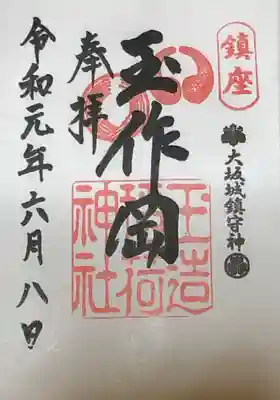 鎮座
大坂城鎮守神
玉作岡
玉造稲荷神社
奉拝
令和元年六月八日